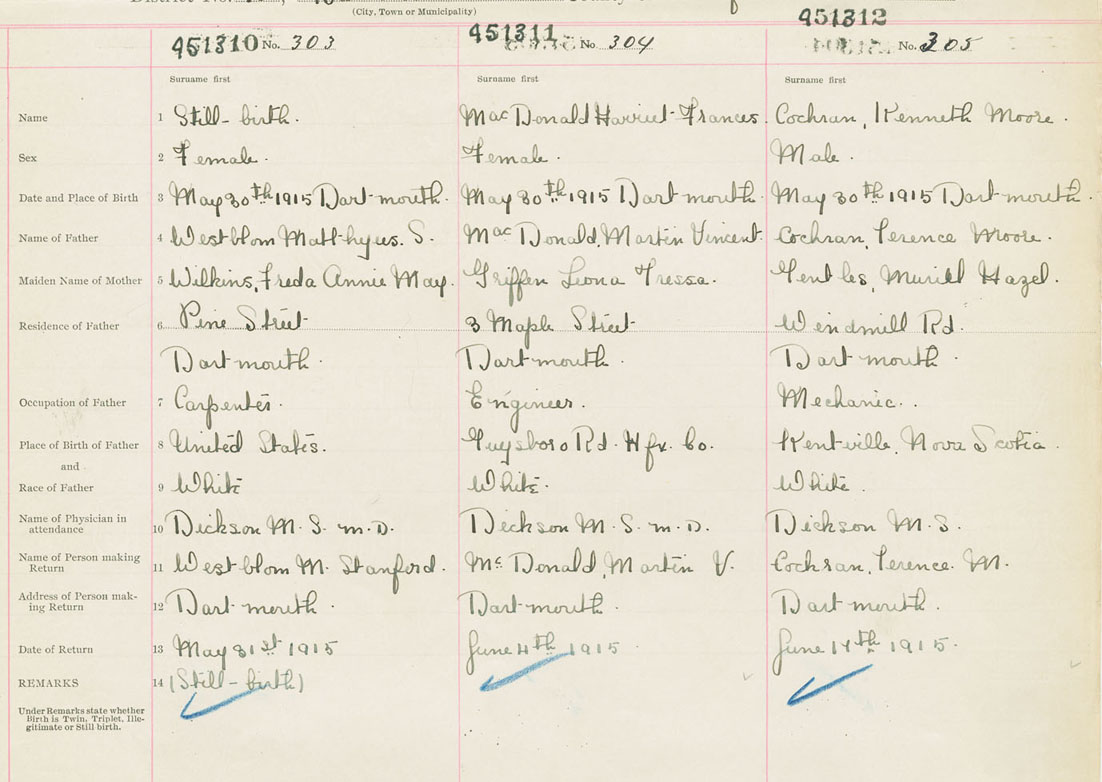 District No.
(City, Town or Municipality)
451310 No. 303 451311 No 304 451312 No. 305
Surname first Surname first Surname first
Name 1 Still-birth. MacDonald Harriet Frances. Cochran, Kenneth Moore.
Sex 2 Female. Female. Male.
Date and Place of Birth 3 May 30th 1915 Dartmouth. May 30th 1915 Dartmouth. May 30th 1915 Dartmouth.
Name of Father 4 Westblom Matthyus. S. MacDonald, Martin Vincent. Cochran, Terence Moore.
Maiden Name of Mother 5 Wilkins, Freda Annie May. Griffen Leona Tressa. Gentles, Muriel Hazel.
Residence of Father 6 Pine Street 3 Maple Street Windmill Rd.
Dartmouth. Dartmouth. Dartmouth.
Occupation of Father 7 Carpenter. Engineer. Mechanic.
Place of Birth of Father 8 United States. Guysboro Rd. Hfx. Co. Kentville, Nova Scotia.
and
Race of Father 9 White White. White.
Name of Physician in
attendance 10 Dickson M. S. M.D. Dickson M. S. M.D. Dickson M. S.
Name of Person making
Return 11 Westblom M. Stanford. McDonald, Martin V. Cochran, Terence. M.
Address of Person mak-
ing Return 12 Dartmouth. Dartmouth. Dartmouth.
Date of Return 13 May 31st 1915 June 4th 1915 June 14th 1915.
REMARKS 14 (Still-birth)
Under Remarks state whether
Birth is Twin, Triplet, Ille-
gitimate or Still birth.